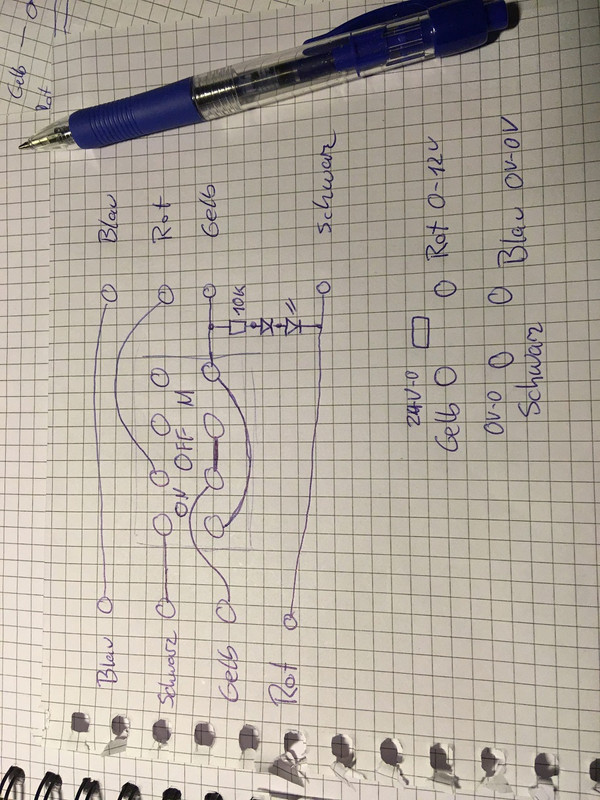 Gelb
Rot
Blau
Rot
Gelb
Schwarz
10k
ON OFF M
Blau
Schwarz
Gelb
Rot
24V-0
Gelb
Rot 0-12V
0V-0
Schwarz
Blau 0V-0V